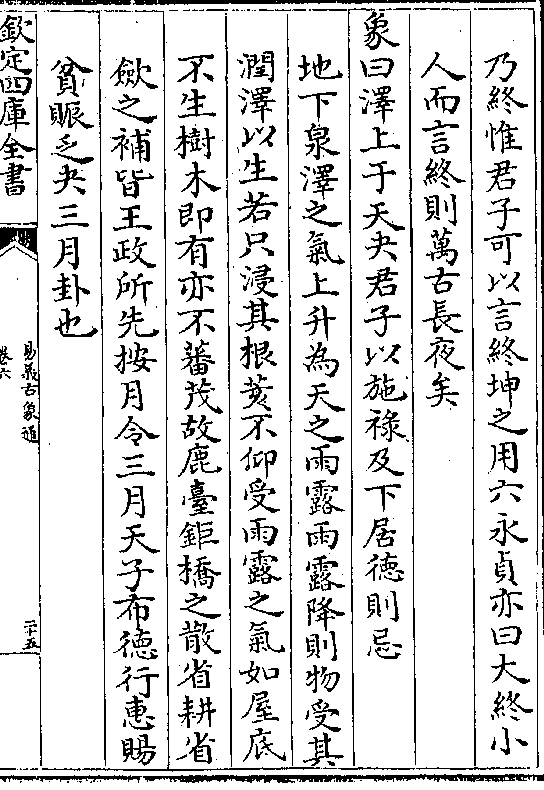 乃終惟君子可以言終坤之用六永貞亦曰大終小
人而言終則萬古長夜矣
象曰澤上于天夬君子以施祿及下居德則忌
地下泉澤之氣上升為天之雨露雨露降則物受其
潤澤以生若只浸其根荄不仰受雨露之氣如屋底
不生樹木即有亦不蕃茂故鹿臺鉅橋之散省耕省
歛之補皆王政所先按月令三月天子布德行惠賜
貧賑乏夬三月卦也
欽定四庫全書
易義古象通
卷六
二十五